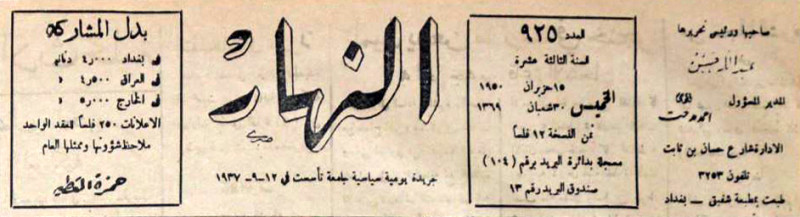 صاحبها ورئيس تحريرها
عبدالله حسن
المدير المسؤول
الادارة شارع حسان بن ثابت
تلفون ٣٢٥٣
طبعت بمطبعة شفيق — بغداد
العدد ٩٢٥
السنة الثالثة عشرة
الخميس
١٥ حزيران ١٩٥٠
٣٠ شعبان ١٣٦٩
ثمن النسخة ١٢ فلساً
مسجلة بدائرة البريد برقم (١٠٤)
صندوق البريد رقم ١٣
النهار
جريدة يومية سياسية جامعة تأسست في ١٢-٩-١٩٣٧
بدل المشاركة
في بغداد ٤٫٠٠٠ دنانير
في العراق ٤٫٥٠٠ »
في الخارج ٥٫٠٠٠ »
الاعلانات ٢٥٠ فلساً للعقد الواحد
ملاحظ شؤونها وممثلها العام
حمزة